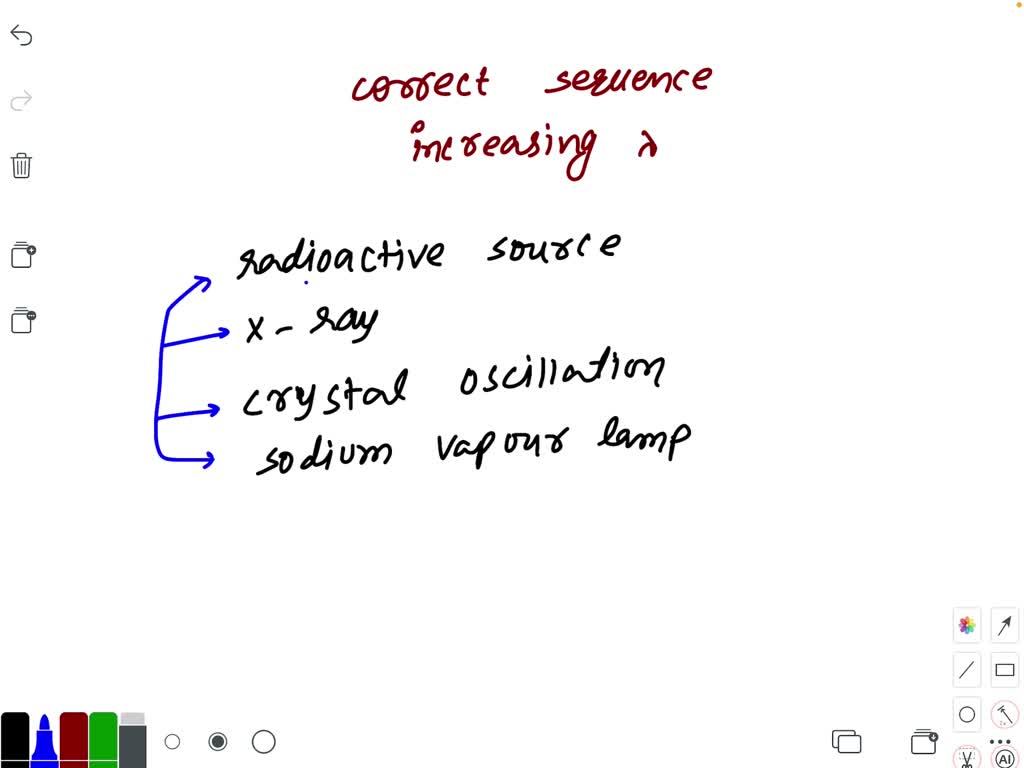 correct sequence
increasing λ
radioactive source
x - ray
crystal oscillation
sodium vapour lamp
AI